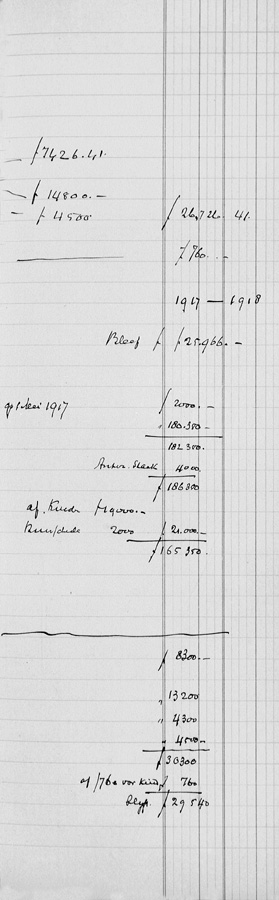 – ƒ 7426.41.
– ƒ 14800.–
– ƒ 4500 ƒ 26,726. 41.
ƒ 760. –
1917 – 1918
Bleef ƒ ƒ 25.966. –
op 1 Mei 1917 ƒ 2000. –
" 180.350 –
182 350.
4000.
ƒ 186300
af. ƒ 19000.–
2000 ƒ 21.000.–
ƒ 165 350.
ƒ 8300.–
" 13200
" 4300
" 4500.–
ƒ 30300
af ƒ 760 voor kind. ƒ 760
Blijft. ƒ 29540